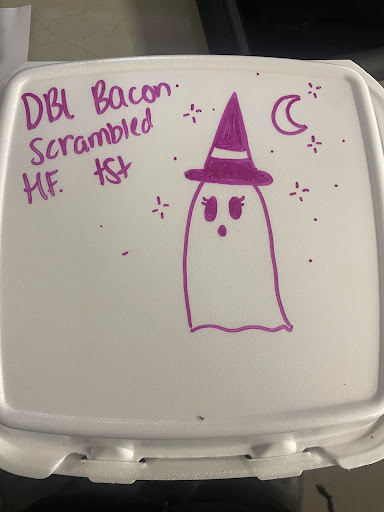 DBL Bacon
Scrambled
HF. tst